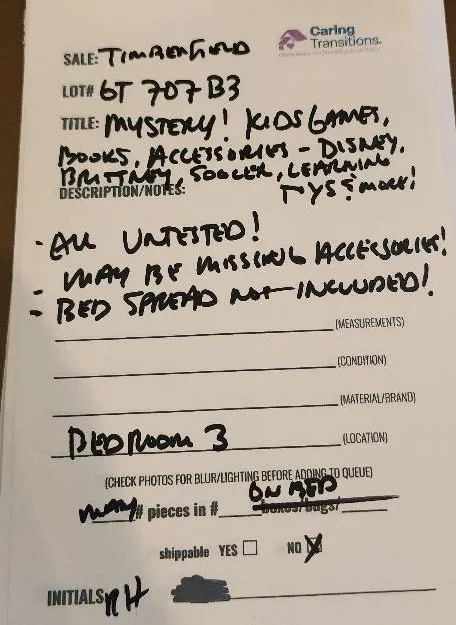 Caring
Transitions.
SALE: TIMBERFIELD
LOT# 6T 707 B3
TITLE: MYSTERY! KIDS GAMES,
BOOKS, ACCESSORIES - DISNEY,
BRITTNEY, SOCCER, LEARNING
DESCRIPTION/NOTES: TYS & MORE!
- ALL UNTESTED!
- MAY BE MISSING ACCESSORIES!
- BED SPREAD NOT INCLUDED!
(MEASUREMENTS)
(CONDITION)
(MATERIAL/BRAND)
BEDROOM 3 (LOCATION)
(CHECK PHOTOS FOR BLUR/LIGHTING BEFORE ADDING TO QUEUE)
ON BED
MANY # pieces in # boxes/bags/
shippable YES NO X
INITIALS RH